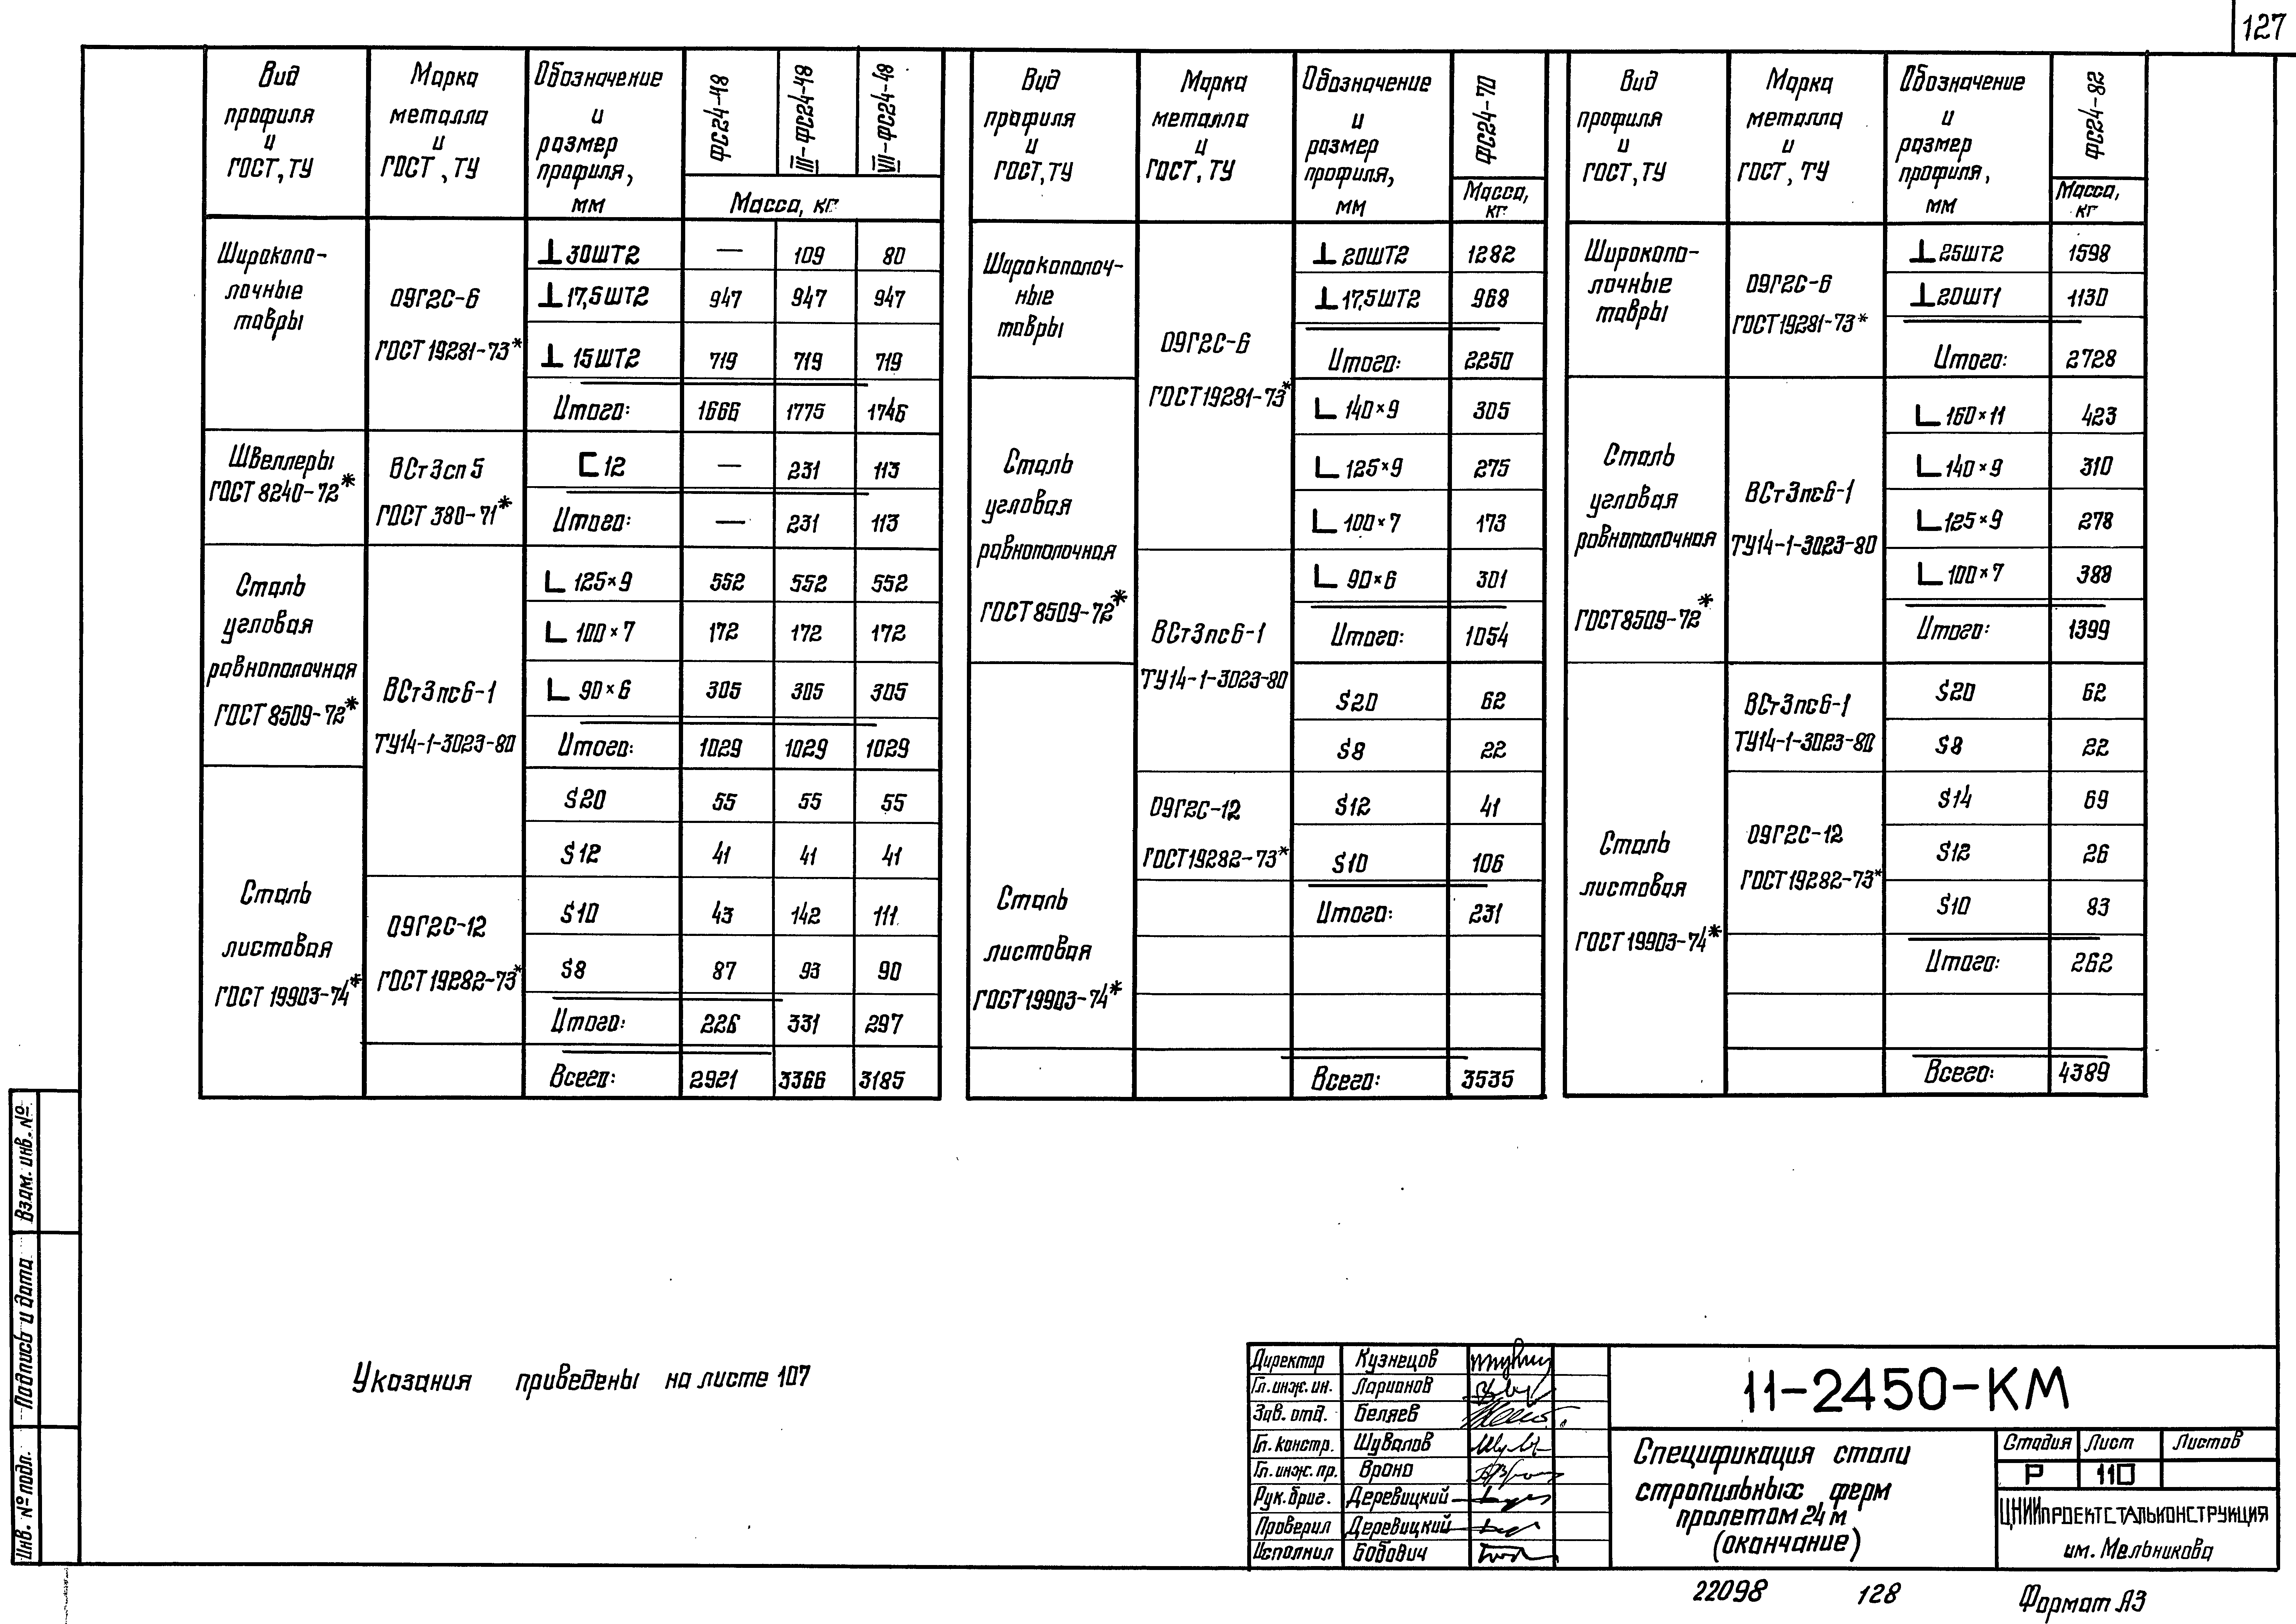 127
Вид профиля и ГОСТ, ТУ | Марка металла и ГОСТ, ТУ | Обозначение и размер профиля, мм | ФС24-48 | III-ФС24-48 | VII-ФС24-48
Масса, кг
Широкополочные тавры | 09Г2С-6 ГОСТ 19281-73* | ⊥ 30ШТ2 | — | 109 | 80
⊥ 17,5ШТ2 | 947 | 947 | 947
⊥ 15ШТ2 | 719 | 719 | 719
Итого: | 1666 | 1775 | 1746
Швеллеры ГОСТ 8240-72* | ВСт3сп5 ГОСТ 380-71* | [ 12 | — | 231 | 113
Итого: | — | 231 | 113
Сталь угловая равнополочная ГОСТ 8509-72* | ВСт3пс6-1 ТУ14-1-3023-80 | L 125×9 | 552 | 552 | 552
L 100×7 | 172 | 172 | 172
L 90×6 | 305 | 305 | 305
Итого: | 1029 | 1029 | 1029
Сталь листовая ГОСТ 19903-74* | S20 | 55 | 55 | 55
S12 | 41 | 41 | 41
09Г2С-12 ГОСТ 19282-73* | S10 | 43 | 142 | 111
S8 | 87 | 93 | 90
Итого: | 226 | 331 | 297
Всего: | 2921 | 3366 | 3185
Вид профиля и ГОСТ, ТУ | Марка металла и ГОСТ, ТУ | Обозначение и размер профиля, мм | ФС24-70
Масса, кг
Широкополочные тавры | 09Г2С-6 ГОСТ 19281-73* | ⊥ 20ШТ2 | 1282
⊥ 17,5ШТ2 | 968
Итого: | 2250
Сталь угловая равнополочная ГОСТ 8509-72* | L 140×9 | 305
L 125×9 | 275
L 100×7 | 173
ВСт3пс6-1 ТУ14-1-3023-80 | L 90×6 | 301
Итого: | 1054
Сталь листовая ГОСТ 19903-74* | S20 | 62
S8 | 22
09Г2С-12 ГОСТ 19282-73* | S12 | 41
S10 | 106
Итого: | 231
Всего: | 3535
Вид профиля и ГОСТ, ТУ | Марка металла и ГОСТ, ТУ | Обозначение и размер профиля, мм | ФС24-82
Масса, кг
Широкополочные тавры | 09Г2С-6 ГОСТ 19281-73* | ⊥ 25ШТ2 | 1598
⊥ 20ШТ1 | 1130
Итого: | 2728
Сталь угловая равнополочная ГОСТ 8509-72* | ВСт3пс6-1 ТУ14-1-3023-80 | L 160×11 | 423
L 140×9 | 310
L 125×9 | 278
L 100×7 | 388
Итого: | 1399
Сталь листовая ГОСТ 19903-74* | ВСт3пс6-1 ТУ14-1-3023-80 | S20 | 62
S8 | 22
09Г2С-12 ГОСТ 19282-73* | S14 | 69
S12 | 26
S10 | 83
Итого: | 262
Всего: | 4389
Указания приведены на листе 107
Взам. инв. №
Подпись и дата
Инв. № подл.
Директор Кузнецов
Гл. инж. ин. Ларионов
Зав. отд. Беляев
Гл. констр. Шувалов
Гл. инж. пр. Вроно
Рук. бриг. Деревицкий
Проверил Деревицкий
Исполнил Бобович
11-2450-КМ
Спецификация стали
стропильных ферм
пролетом 24 м
(окончание)
Стадия Лист Листов
Р 110
ЦНИИПРОЕКТСТАЛЬКОНСТРУКЦИЯ
им. Мельникова
22098 128 Формат А3